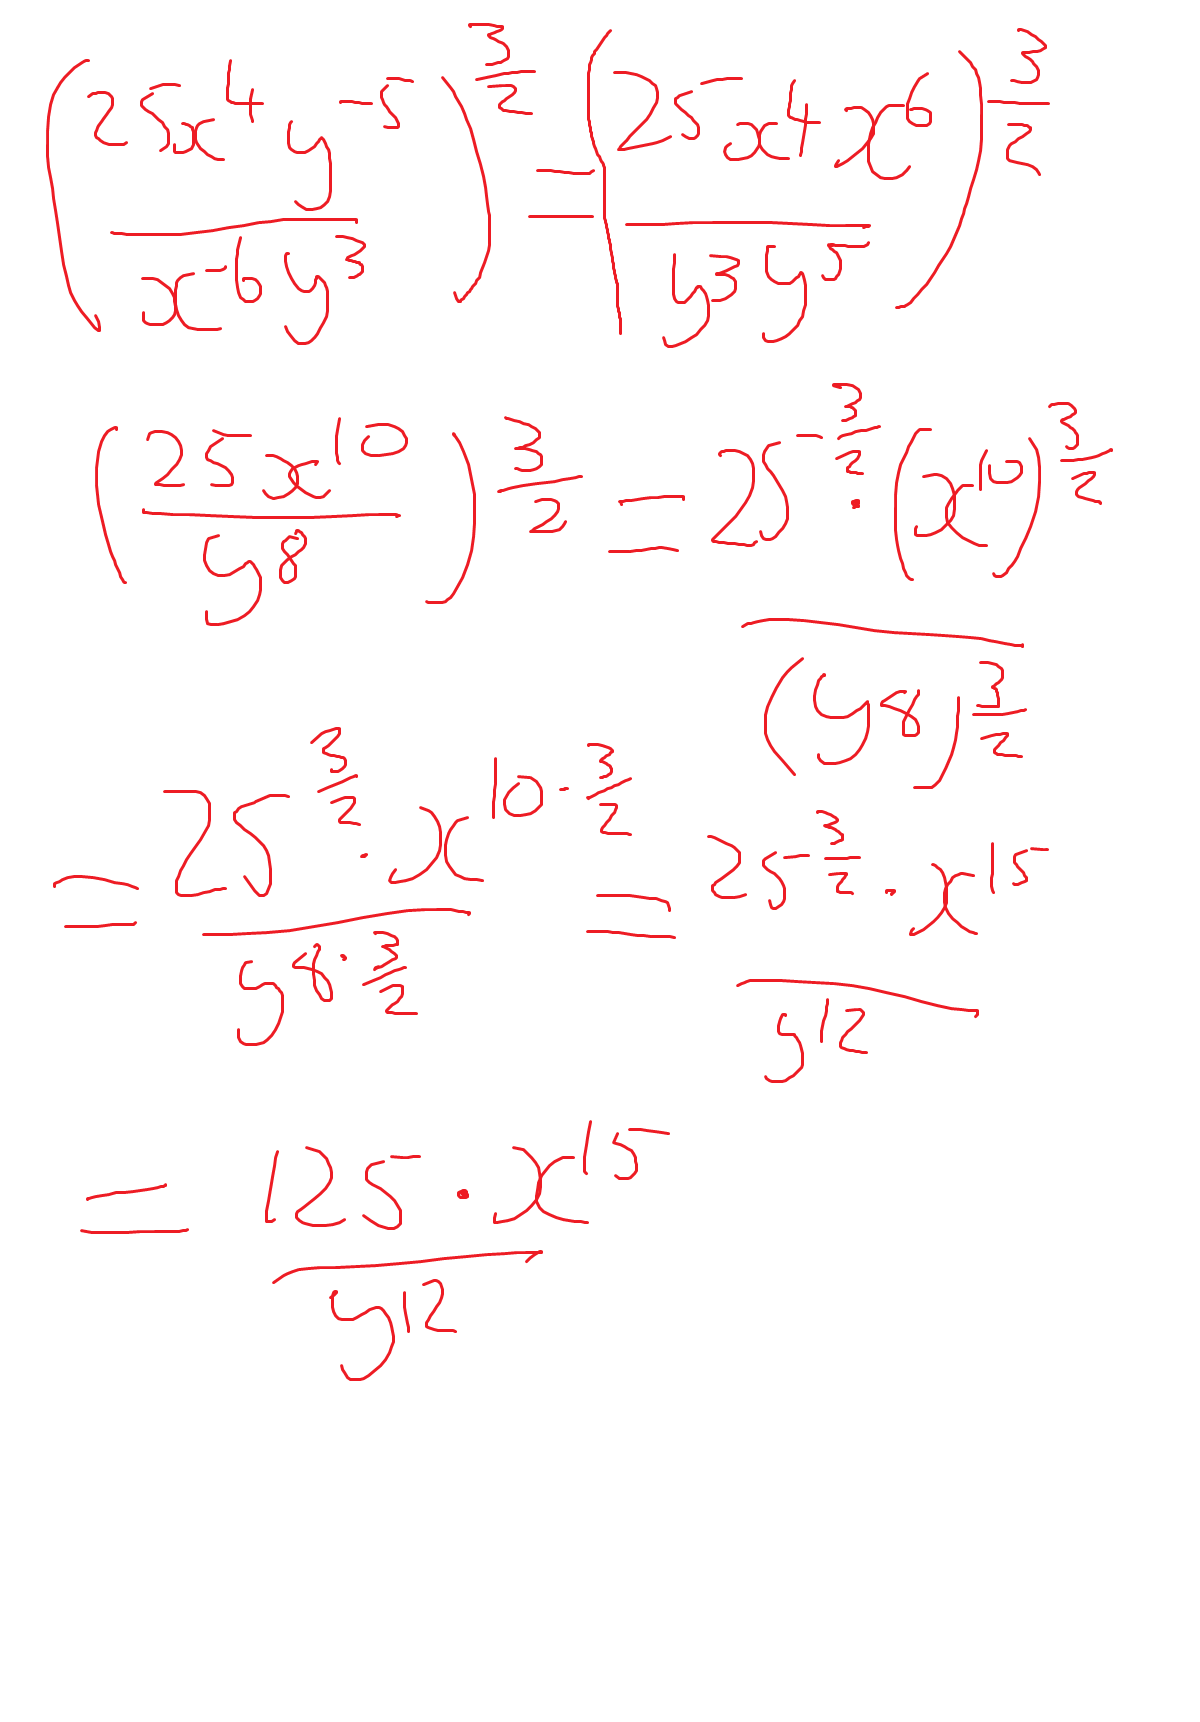 (25x⁴y⁻⁵ / x⁻⁶y³)^(3/2) = (25x⁴x⁶ / y³y⁵)^(3/2)
(25x¹⁰ / y⁸)^(3/2) = 25^(3/2) · (x¹⁰)^(3/2) / (y⁸)^(3/2)
= 25^(3/2) · x^(10·3/2) / y^(8·3/2) = 25^(3/2) · x¹⁵ / y¹²
= 125 · x¹⁵ / y¹²